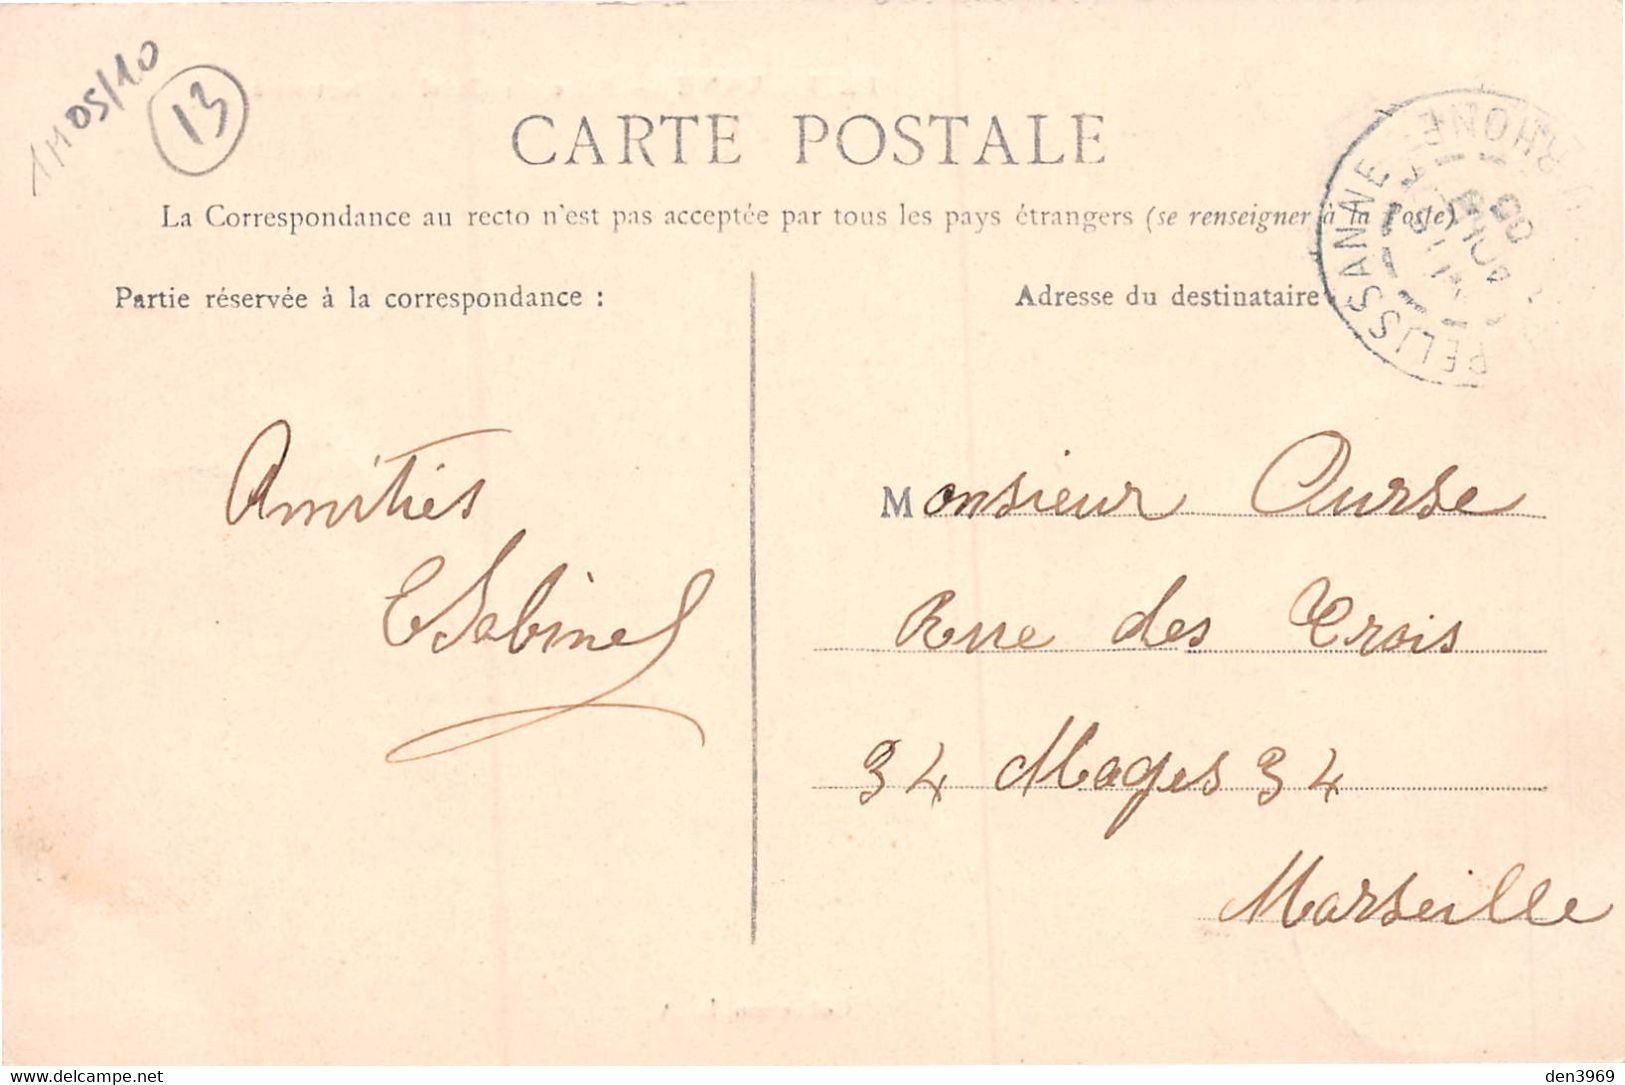 1M05/10
13
CARTE POSTALE
La Correspondance au recto n'est pas acceptée par tous les pays étrangers (se renseigner à la Poste)
PELISSANNE
RHONE
AOUT
Partie réservée à la correspondance :
Adresse du destinataire
Amitiés
ESabinel
Monsieur Ourse
Rue des Trois
34 Mages 34
Marseille
delcampe.net
den3969